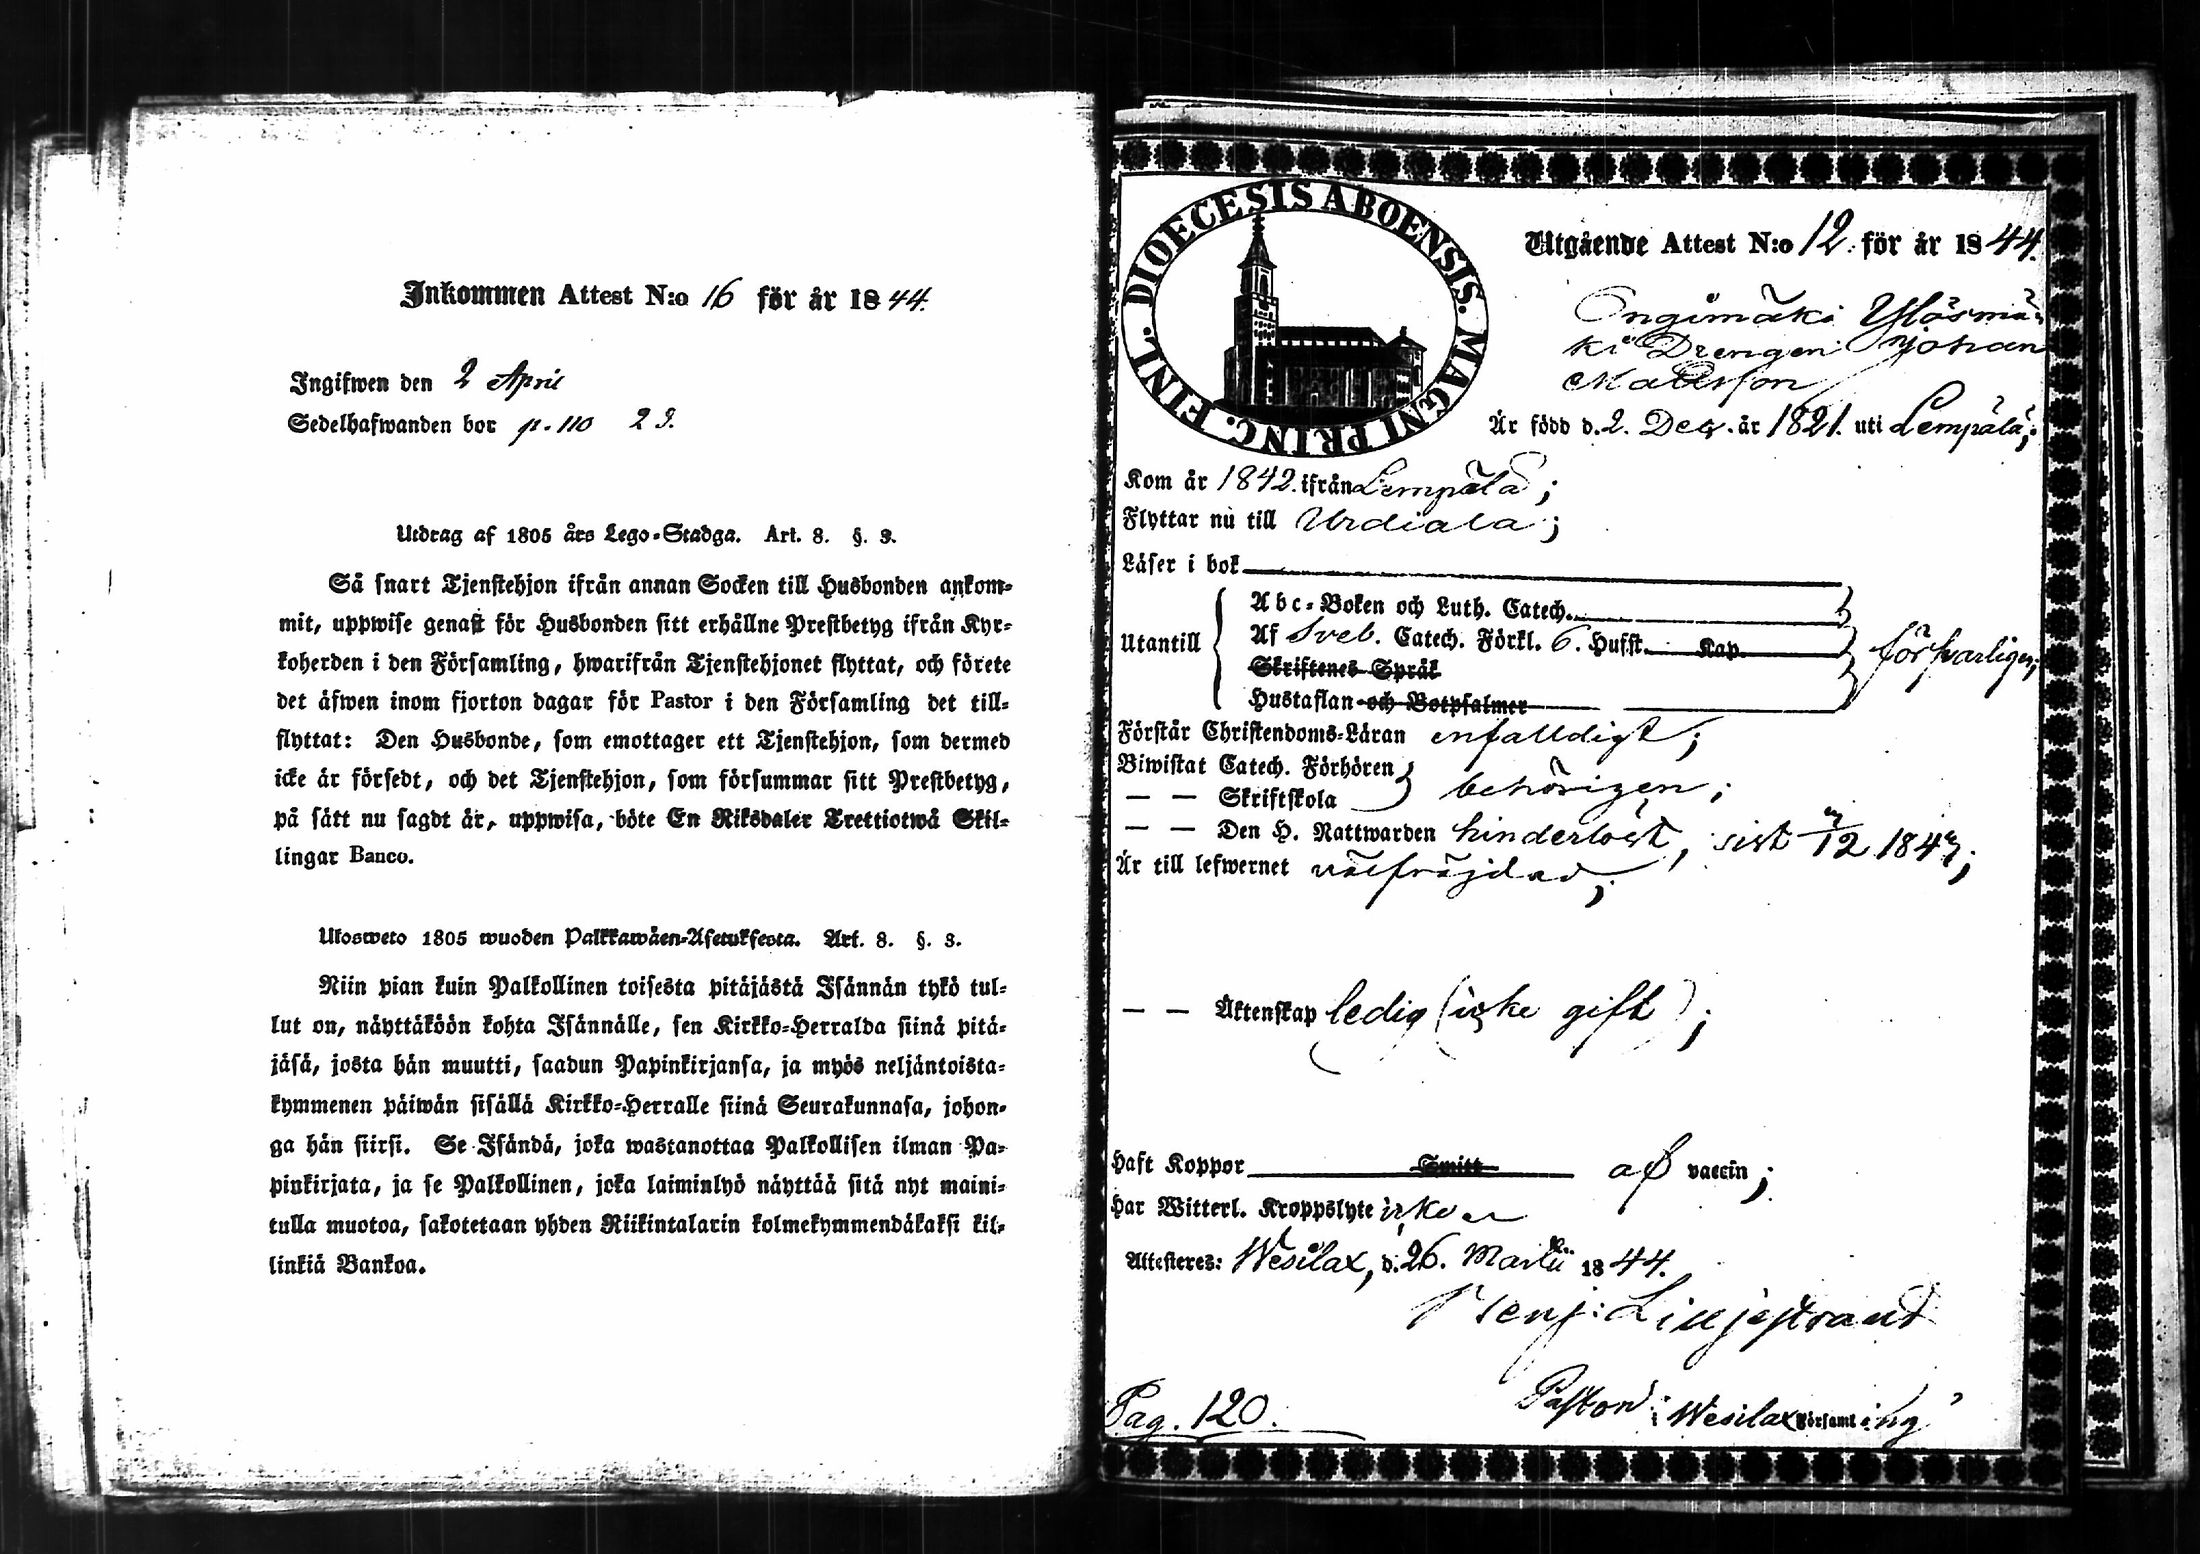 Inkommen Attest N:o 16 för år 1844.
Ingifwen den 2 April
Sedelhafwanden bor p. 110 23.
Utdrag af 1805 års Lego-Stadga. Art. 8. §. 3.
Så snart Tjenstehjon ifrån annan Socken till Husbonden ankom-
mit, uppwise genast för Husbonden sitt erhållne Prestbetyg ifrån Kyr-
koherden i den Församling, hwarifrån Tjenstehjonet flyttat, och förete
det äfwen inom fjorton dagar för Pastor i den Församling det till-
flyttat: Den Husbonde, som emottager ett Tjenstehjon, som dermed
icke är försedt, och det Tjenstehjon, som försummar sitt Prestbetyg,
på sätt nu sagdt är, uppwisa, böte En Riksdaler Trettiotwå Skil-
lingar Banco.
Ulosweto 1805 wuoden Palkkawäen-Asetuksesta. Art. 8. §. 3.
Niin pian kuin Palkollinen toisesta pitäjästä Isännän tykö tul-
lut on, näyttäköön kohta Isännälle, sen Kirkko-Herralda siinä pitä-
jäsä, josta hän muutti, saadun Papinkirjansa, ja myös neljäntoista-
kymmenen päiwän sisällä Kirkko-Herralle siinä Seurakunnasa, johon-
ga hän siirsi. Se Isändä, joka wastanottaa Palkollisen ilman Pa-
pinkirjata, ja se Palkollinen, joka laiminlyö näyttää sitä nyt maini-
tulla muotoa, sakotetaan yhden Riikintalarin kolmekymmendäkaksi kil-
linkiä Bankoa.
DIOECESIS ABOENSIS. MAGNI PRINC. FINL.
Utgående Attest N:o 12. för år 1844.
Ongimäki Ylösmä-
ki Drengen Johan
Mattsson
Är född d. 2. Dec. år 1821. uti Lempälä;
Kom år 1842. ifrån Lempälä;
Flyttar nu till Urdiala;
Läser i bok
Utantill
Abc-Boken och Luth. Catech.
Af Sveb. Catech. Förkl. 6. Hufst. Kap.
Skriftenes Språk
Hustaflan och Botpsalmer
försvarligen;
Förstår Christendoms-Läran enfalldigt;
Biwistat Catech. Förhören
— — Skriftskola
behörigen;
— — Den H. Nattwarden hinderlöst, sist /12 1843;
Är till lefwernet välfräjdad;
— — Äktenskap ledig (icke gift);
Haft Koppor Smitt af vaccin;
Har Witterl. Kroppslyte icke
Attesteres: Wesilax, d. 26. Martii 1844.
Benj: Lilljestrand
Pastor i Wesilax Församling
Pag. 120.